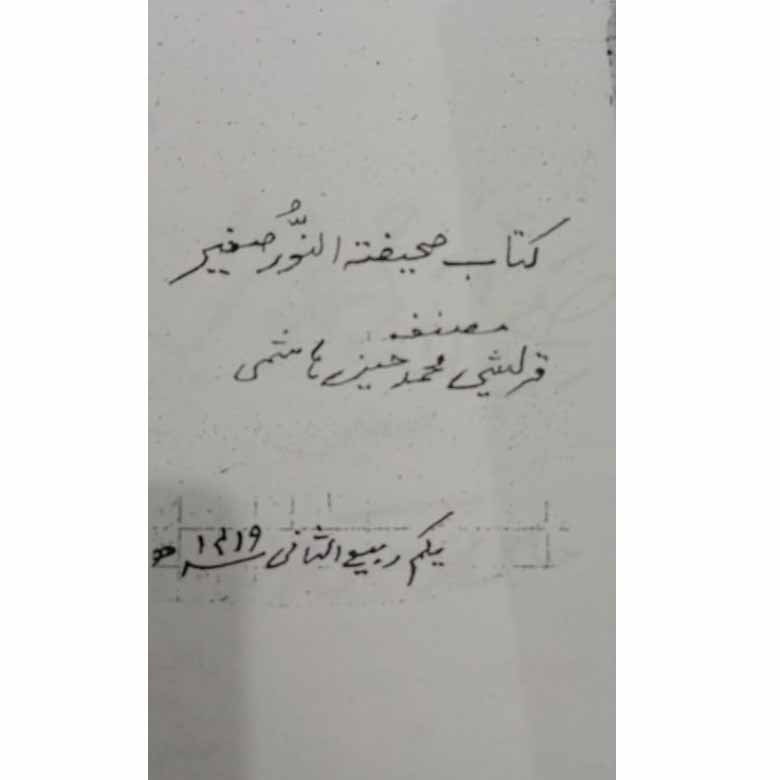 کتاب صحیفتہ النُّور صغیر
مصنفہ
قریشی محمد حسین ہاشمی
یکم ربیع الثانی ۱۴۱۹ھ